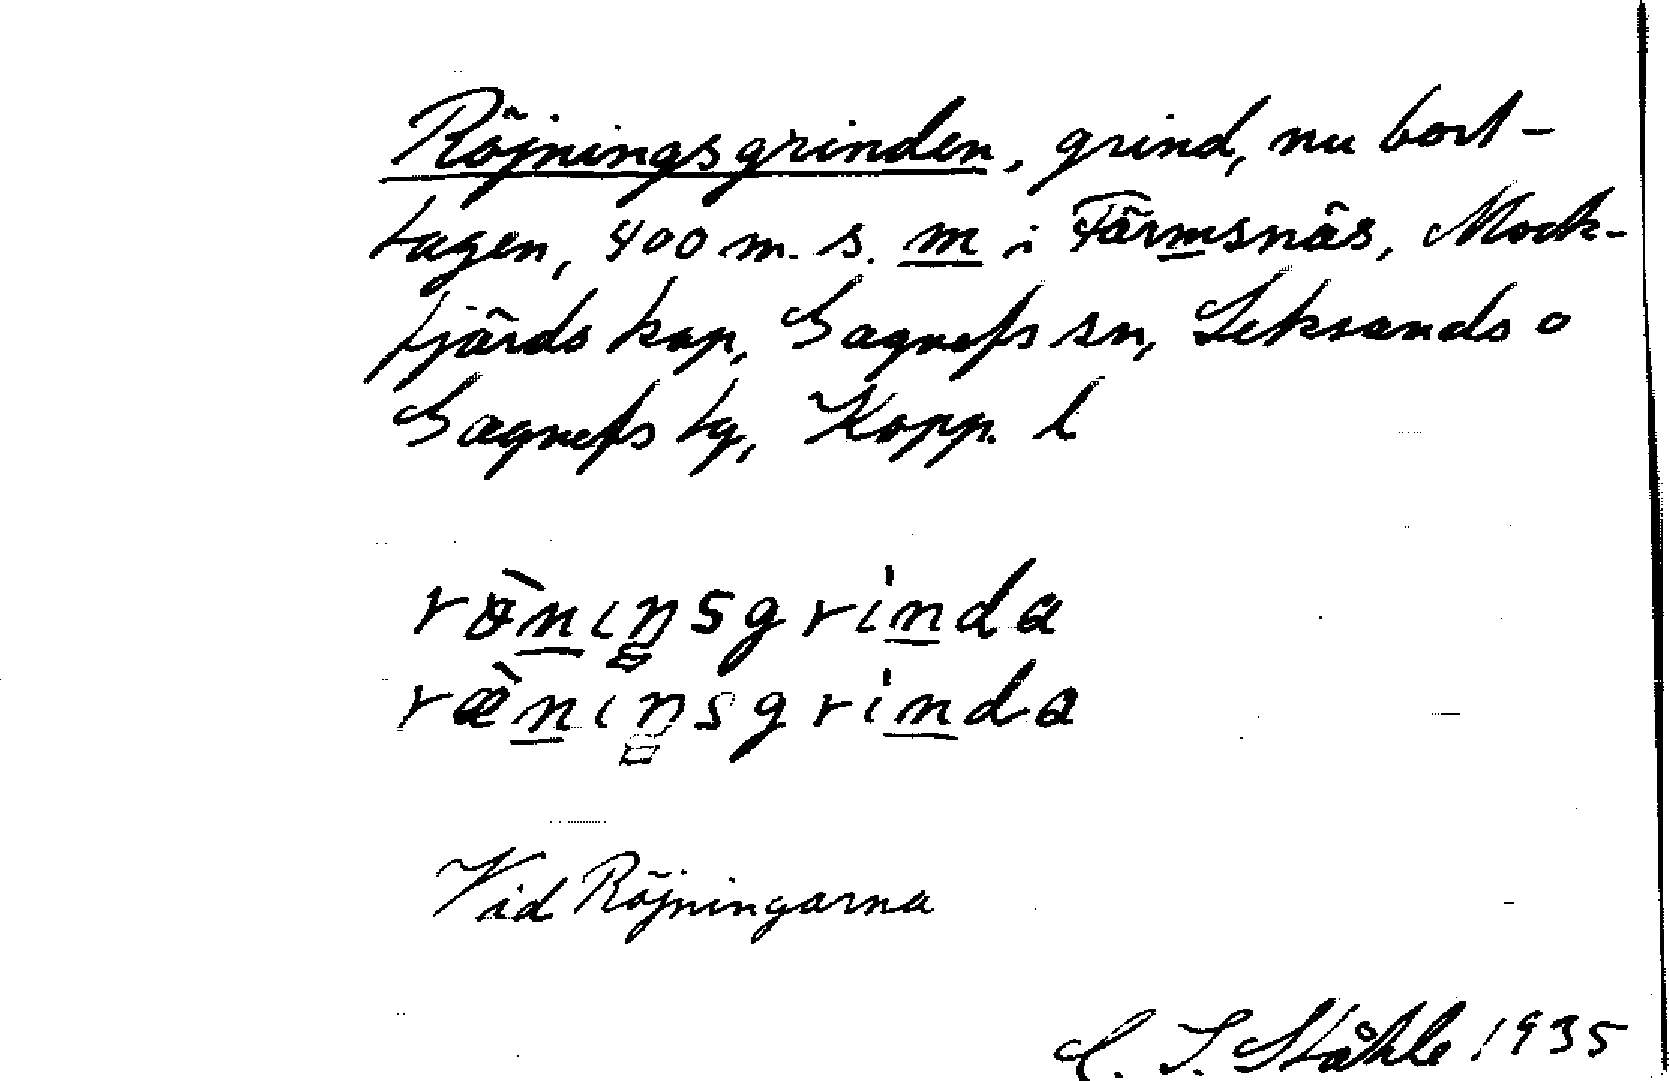 Röjningsgrinden, grind, nu bort-
tagen, 400 m. s. m i Färmsnäs, Mock-
fjärds kap, Gagnefs sn, Leksands o
Gagnefs tg, Kopp. l
rø̀nıŋsgrinda
ræ̀nıŋsgrinda
Vid Röjningarna
C. I. Ståhle 1935